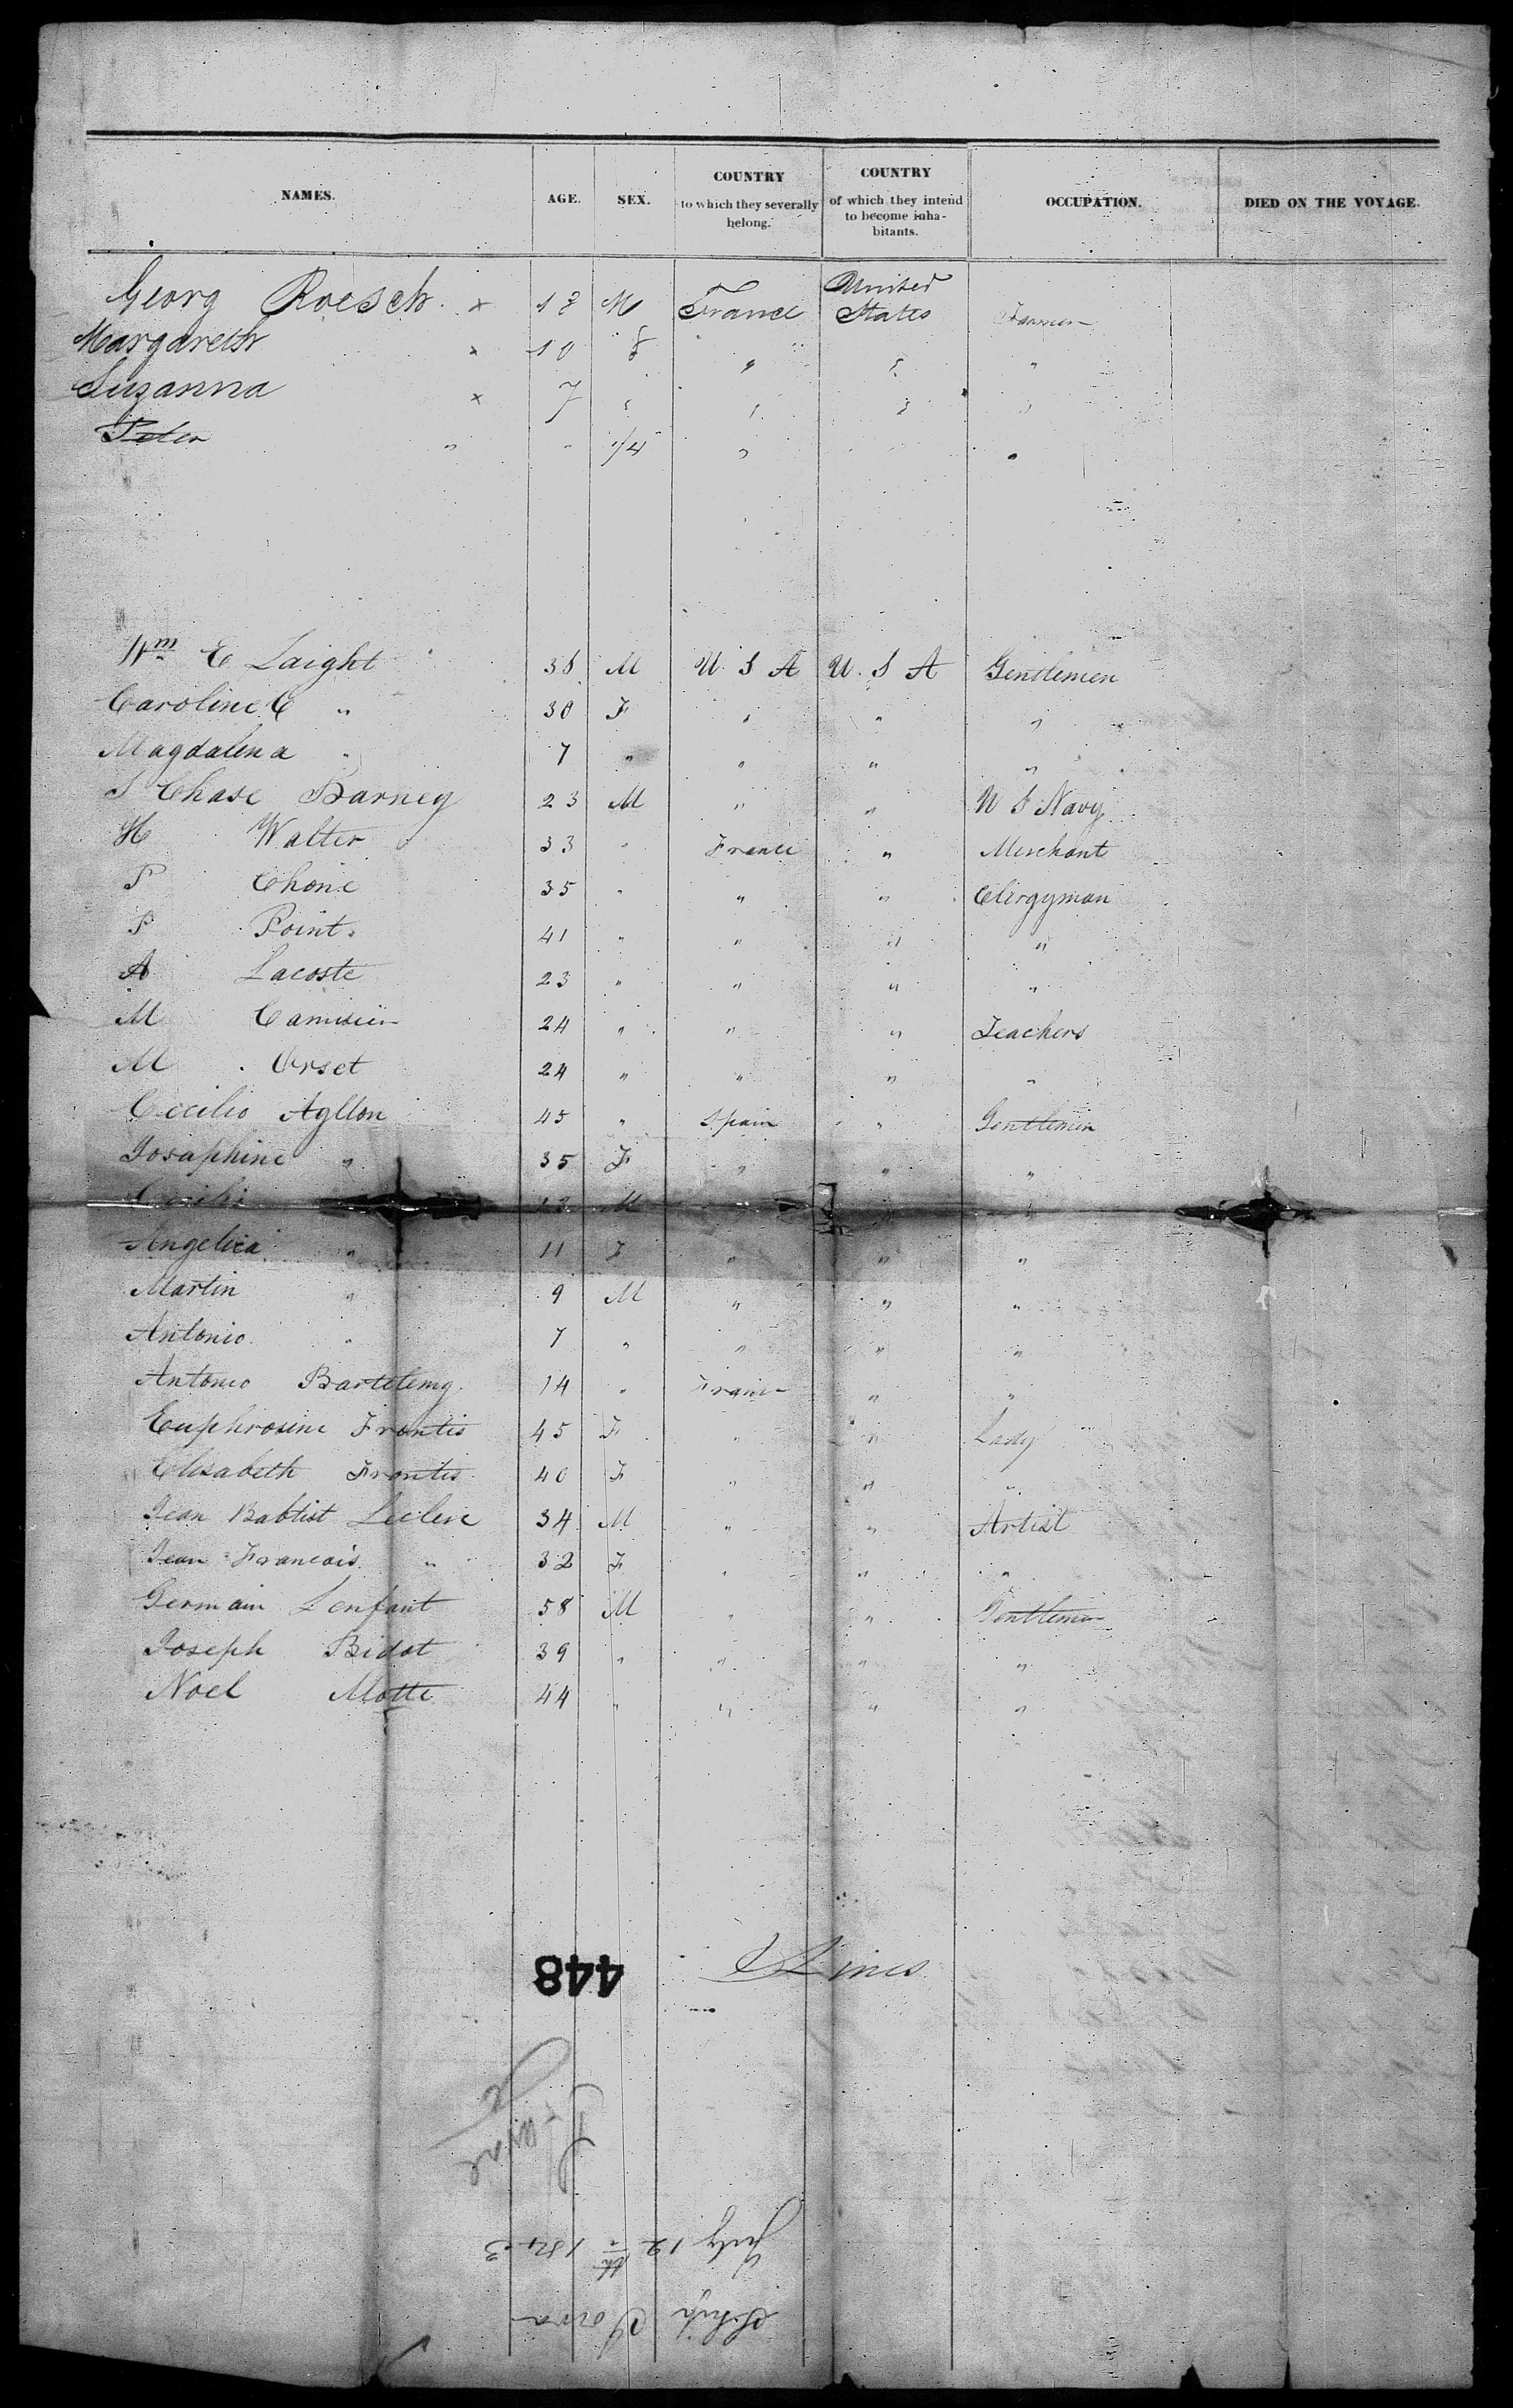 NAMES. AGE. SEX. COUNTRY to which they severally belong. COUNTRY of which they intend to become inhabitants. OCCUPATION. DIED ON THE VOYAGE.
Georg Roesch x M France United States Farmer
Margareth x 10 " "
Suzanna x 7 " " " "
Peter " " 1/4 " "
Wm E Laight 38 M U S A U. S A Gentlemen
Caroline C " 30 F " " "
Magdalena " 7 " " " "
S Chase Barney 23 M " " U S Navy
H Walter 33 " France " Merchant
P Chone 35 " " " Clergyman
P Point 41 " " " "
A Lacoste 23 " " " "
M 24 " " " Teachers
M Orset 24 " " " "
Cecilio Ayllon 45 " Spain " Gentlemen
Josaphine " 35 F " " "
M
Angelica " 11 F " " "
Martin " 9 M " " "
Antonio " 7 " " " "
Antonio Bartelemy 14 " France " "
Euphrosine Frontis 45 F " " Lady
Elisabeth Frontis 40 F " " "
Jean Babtist Leclerc 34 M " " Artist
Jean Francois " 32 F " " "
Germain Lenfant 58 M " " Gentlemen
Joseph Bidot 39 " " " "
Noel Motte 44 " " " "
448
July 12th 1843
Ship